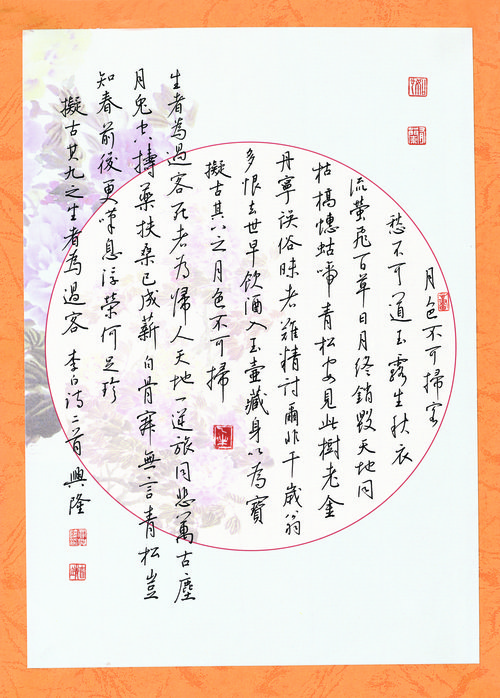 月色不可掃客
愁不可道玉露生秋衣
流螢飛百草日月終銷毀天地同
枯槁蟪蛄啼青松安見此樹老金
丹寧誤俗昧者難精討爾非千歲翁
多恨去世早飲酒入玉壺藏身以為寶
擬古其八之月色不可掃
生者為過客死者為歸人天地一逆旅同悲萬古塵
月兔空搗藥扶桑已成薪白骨寂無言青松豈
知春前後更嘆息浮榮何足珍
擬古其九之生者為過客 李白詩二首 興隆